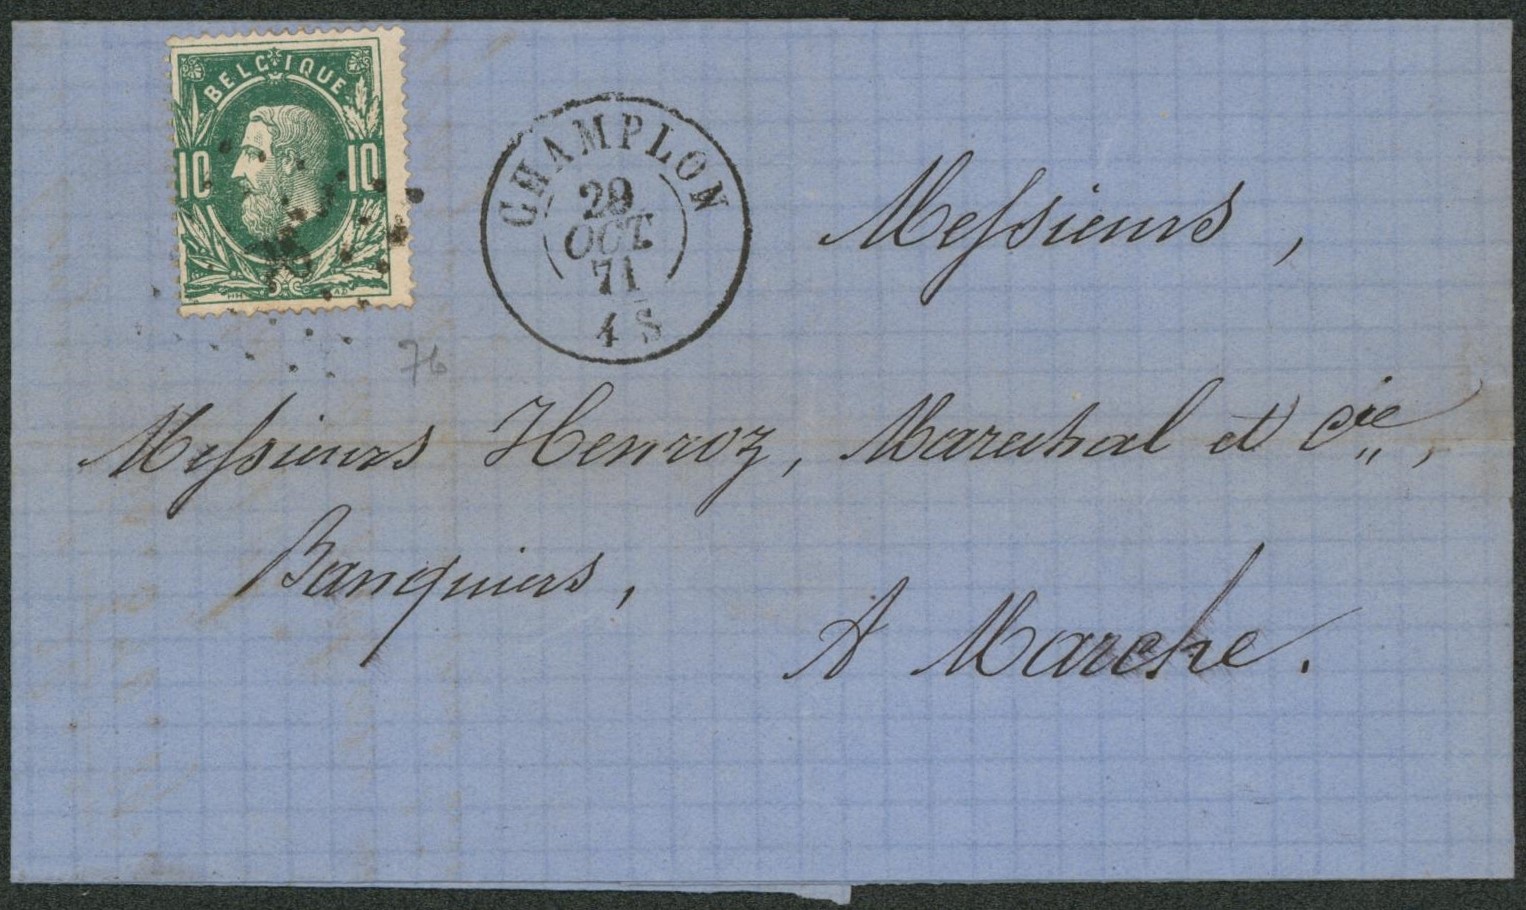 BELGIQUE
10 10
CHAMPLON
29
OCT.
71
4 S
Messieurs,
76
Messieurs Henroz, Marechal et Cie,
Banquiers,
A Marche.